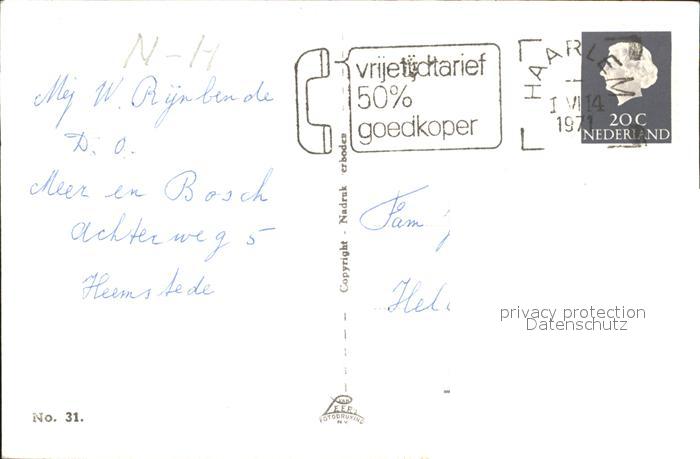 N-H
Mej W. Rijnbende
D. O.
Meer en Bosch
Achterweg 5
Heemstede
vrijetijdtarief
50%
goedkoper
HAARLEM
I VI 14
1971
20 C
NEDERLAND
Copyright - Nadruk erboden
Fam
Hel
privacy protection
Datenschutz
No. 31.
VAN
LEER'S
FOTODRUKIND
N.V.